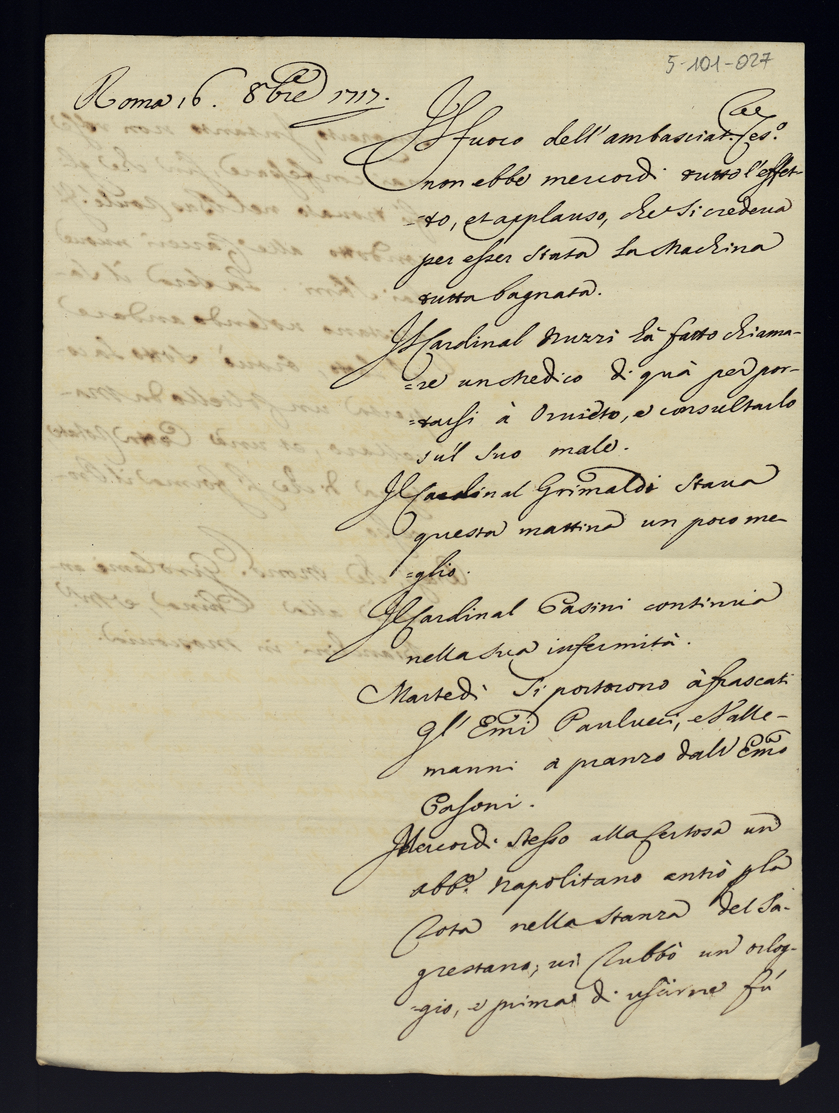 5-101-027
Roma 16. 8bre 1717.
Il fuoco dell'ambasciat. Ces.o
non ebbe mercordi tutto l'effet-
=to, et applauso, che si credeva
per esser stata la machina
tutta bagnata.
Il Cardinal Nuzzi hà fatto chiama-
=re un Medico di quà per por-
=tarsi à Orvieto, e consultarlo
sul suo male.
Il Cardinal Grimaldi stava
questa mattina un poco me-
=glio.
Il Cardinal Casini continua
nella sua infermità.
Martedì si portorono à frascati
gl' Emi Paulucci, e Valle-
manni a pranzo dall' Emo
Casoni.
Mercordi stesso alla Certosa un
abb.e Napolitano entrò p la
Rota nella stanza del Sa-
grestano, vi rubbò un orlog-
=gio, e prima di uscirne fú